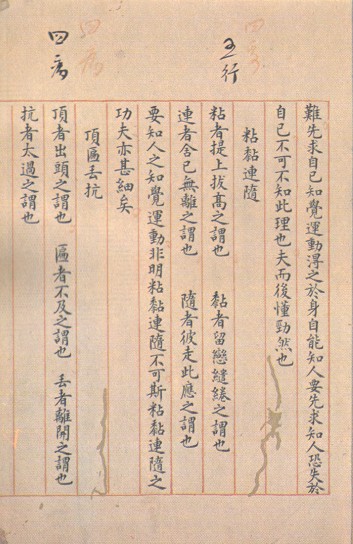 難先求自己知覺運動得之於身自能知人要先求知人恐失於
自己不可不知此理也夫而後懂勁然也
五行
粘黏連隨
粘者提上拔高之謂也 黏者留戀繾綣之謂也
連者舍己無離之謂也 隨者彼走此應之謂也
要知人之知覺運動非明粘黏連隨不可斯粘黏連隨之
功夫亦甚細矣
四病
頂匾丟抗
頂者出頭之謂也 匾者不及之謂也 丟者離開之謂也
抗者太過之謂也